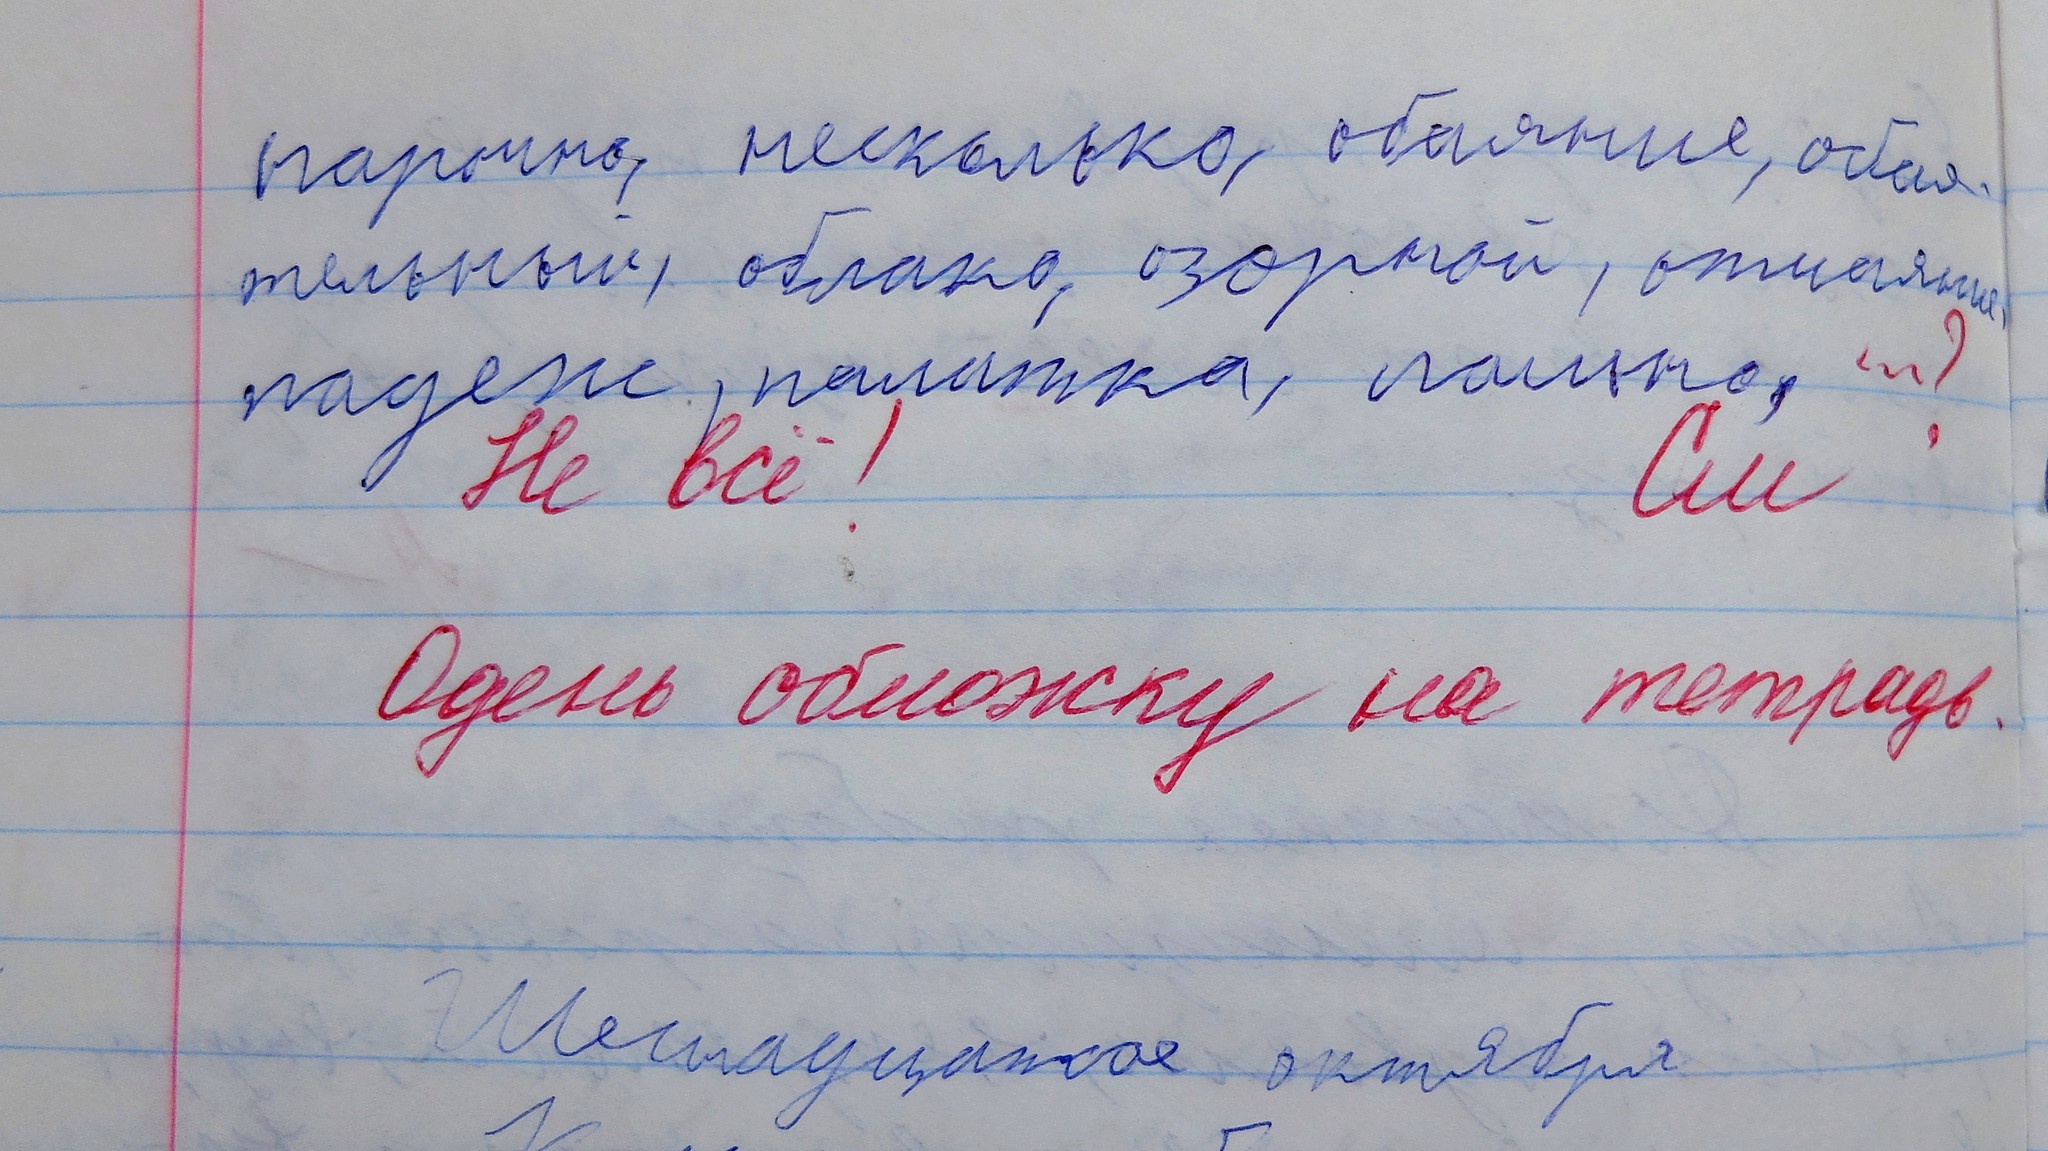 нарочно, несколько, обаяние, обая-
тельный, облако, озорной, отчаяние,
падеж, палатка, пальто, ...?
Не всё! См
Одень обложку на тетрадь.
Шеснадцатое октября